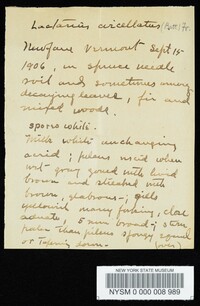 Lactarius circellatus (Batt) Fr.
Newfane Vermont Sept 15-
1906, in spruce needle
soil and sometimes among
decaying leaves, fir and
mixed woods.
spores white.
Milk white unchanging
acrid; pileus viscid when
wet- gray zoned with lurid
brown and streaked with
brown, glabrous-; gills
yellowish many forking, close
adnate, 5 mm broad-; stem
paler than pileus spongy equal
or tapering down. (over)
NEW YORK STATE MUSEUM
NYSM 0 000 008 989